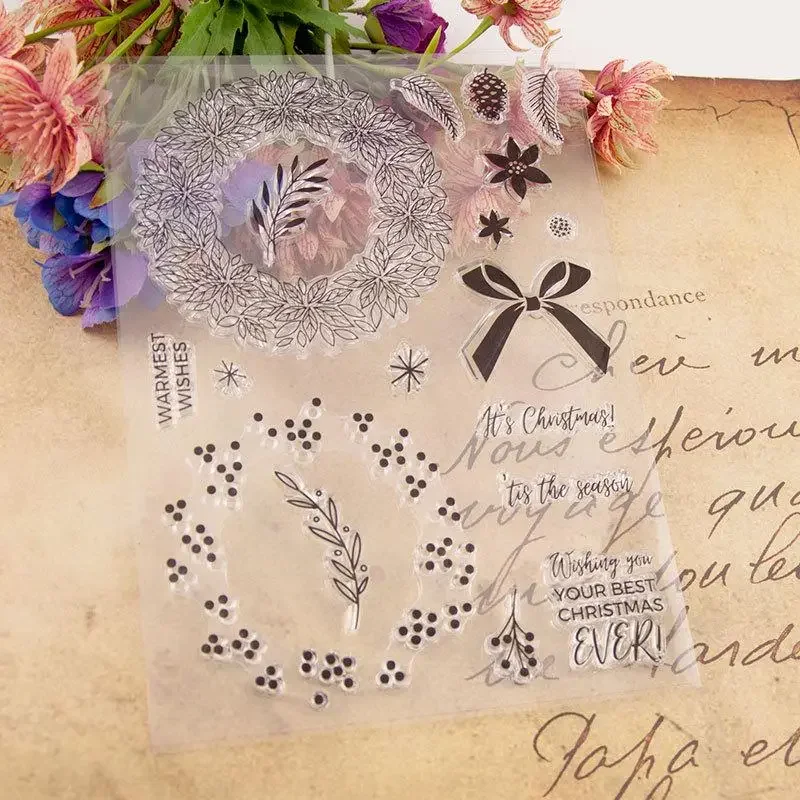 respondance
WARMEST
WISHES
chère
It's Christmas!
Nous espérions
'tis the season
voyage
Wishing you
YOUR BEST
CHRISTMAS
EVER!
Papa et